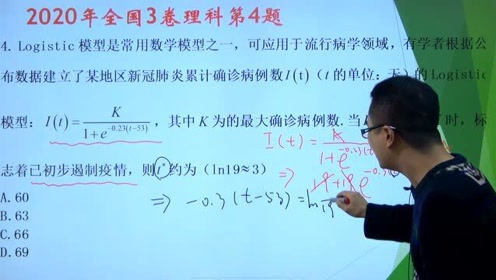 2020年全国3卷理科第4题
4. Logistic 模型是常用数学模型之一，可应用于流行病学领域，有学者根据公
布数据建立了某地区新冠肺炎累计确诊病例数I(t)（t的单位：天）的Logistic
模型：I(t)=K/(1+e^{-0.23(t-53)})，其中K为的最大确诊病例数.当 时，标
I(t)=K/(1+e^{-0.3(t
志着已初步遏制疫情，则t*约为（ln19≈3）
⇒ 19+19e^{-0.3
A.60
⇒ -0.3(t-53)=ln
B.63
C.66
D.69